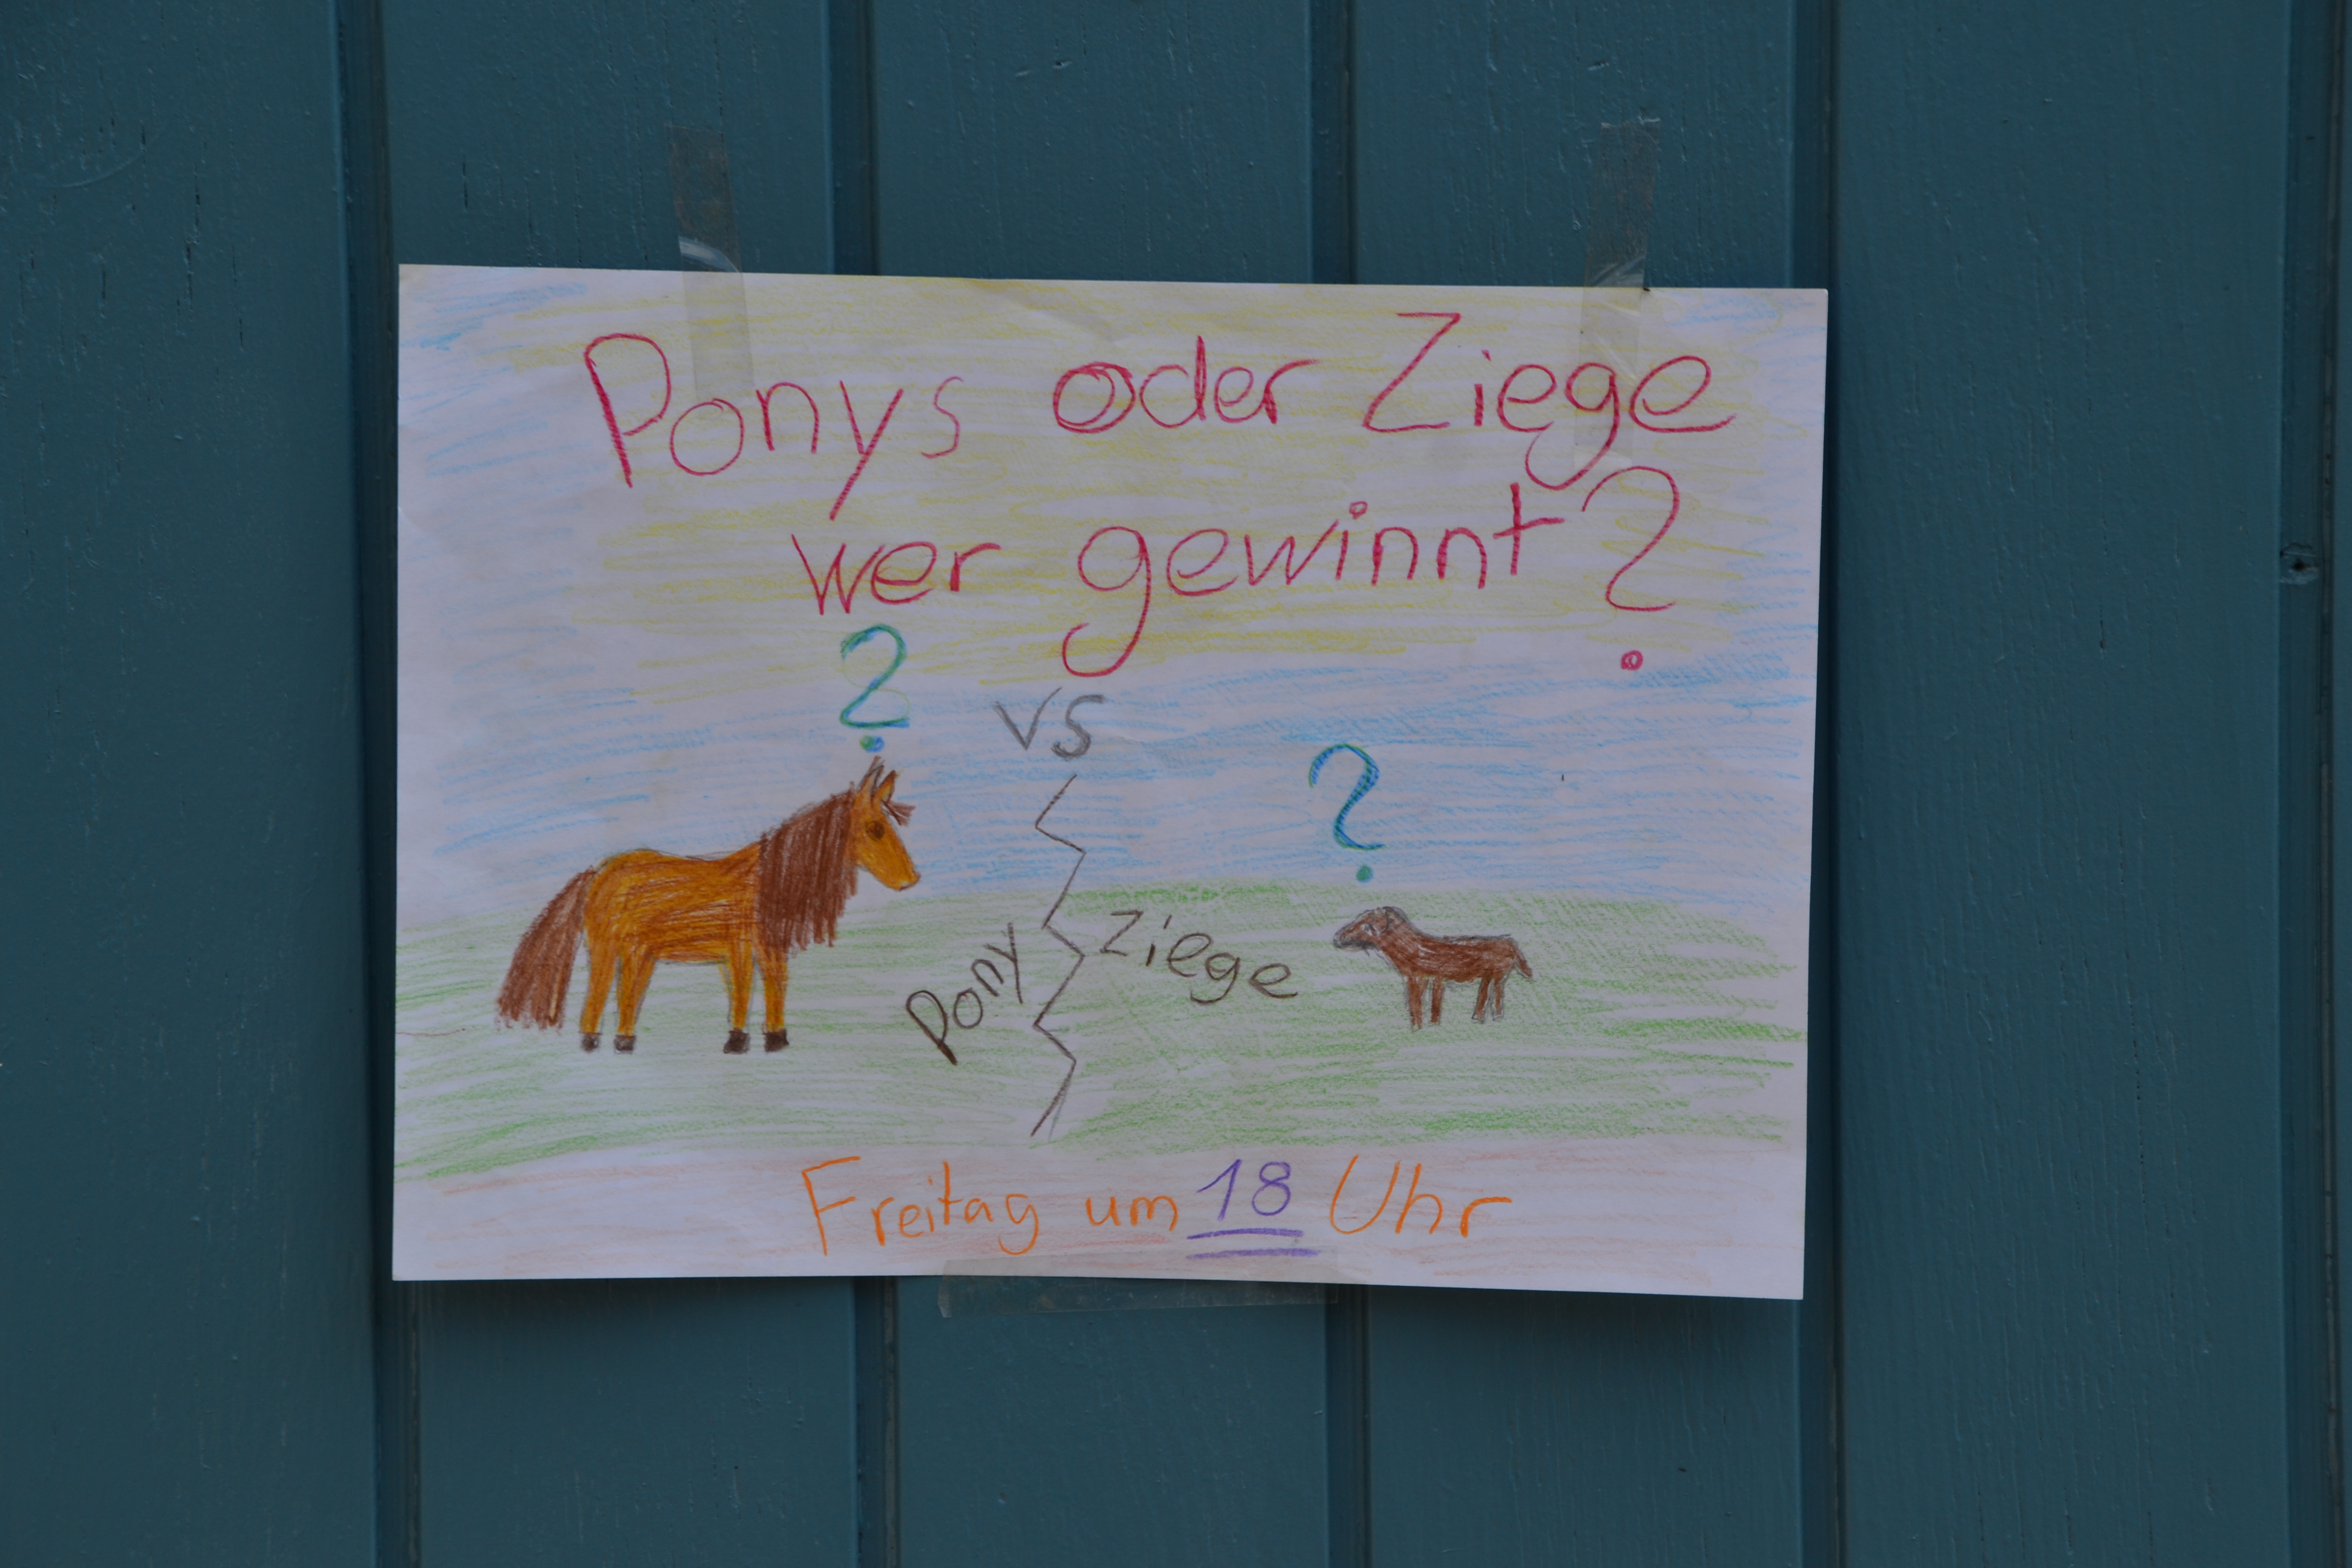 Ponys oder Ziege
wer gewinnt?
?
vs
?
Pony
Ziege
Freitag um 18 Uhr